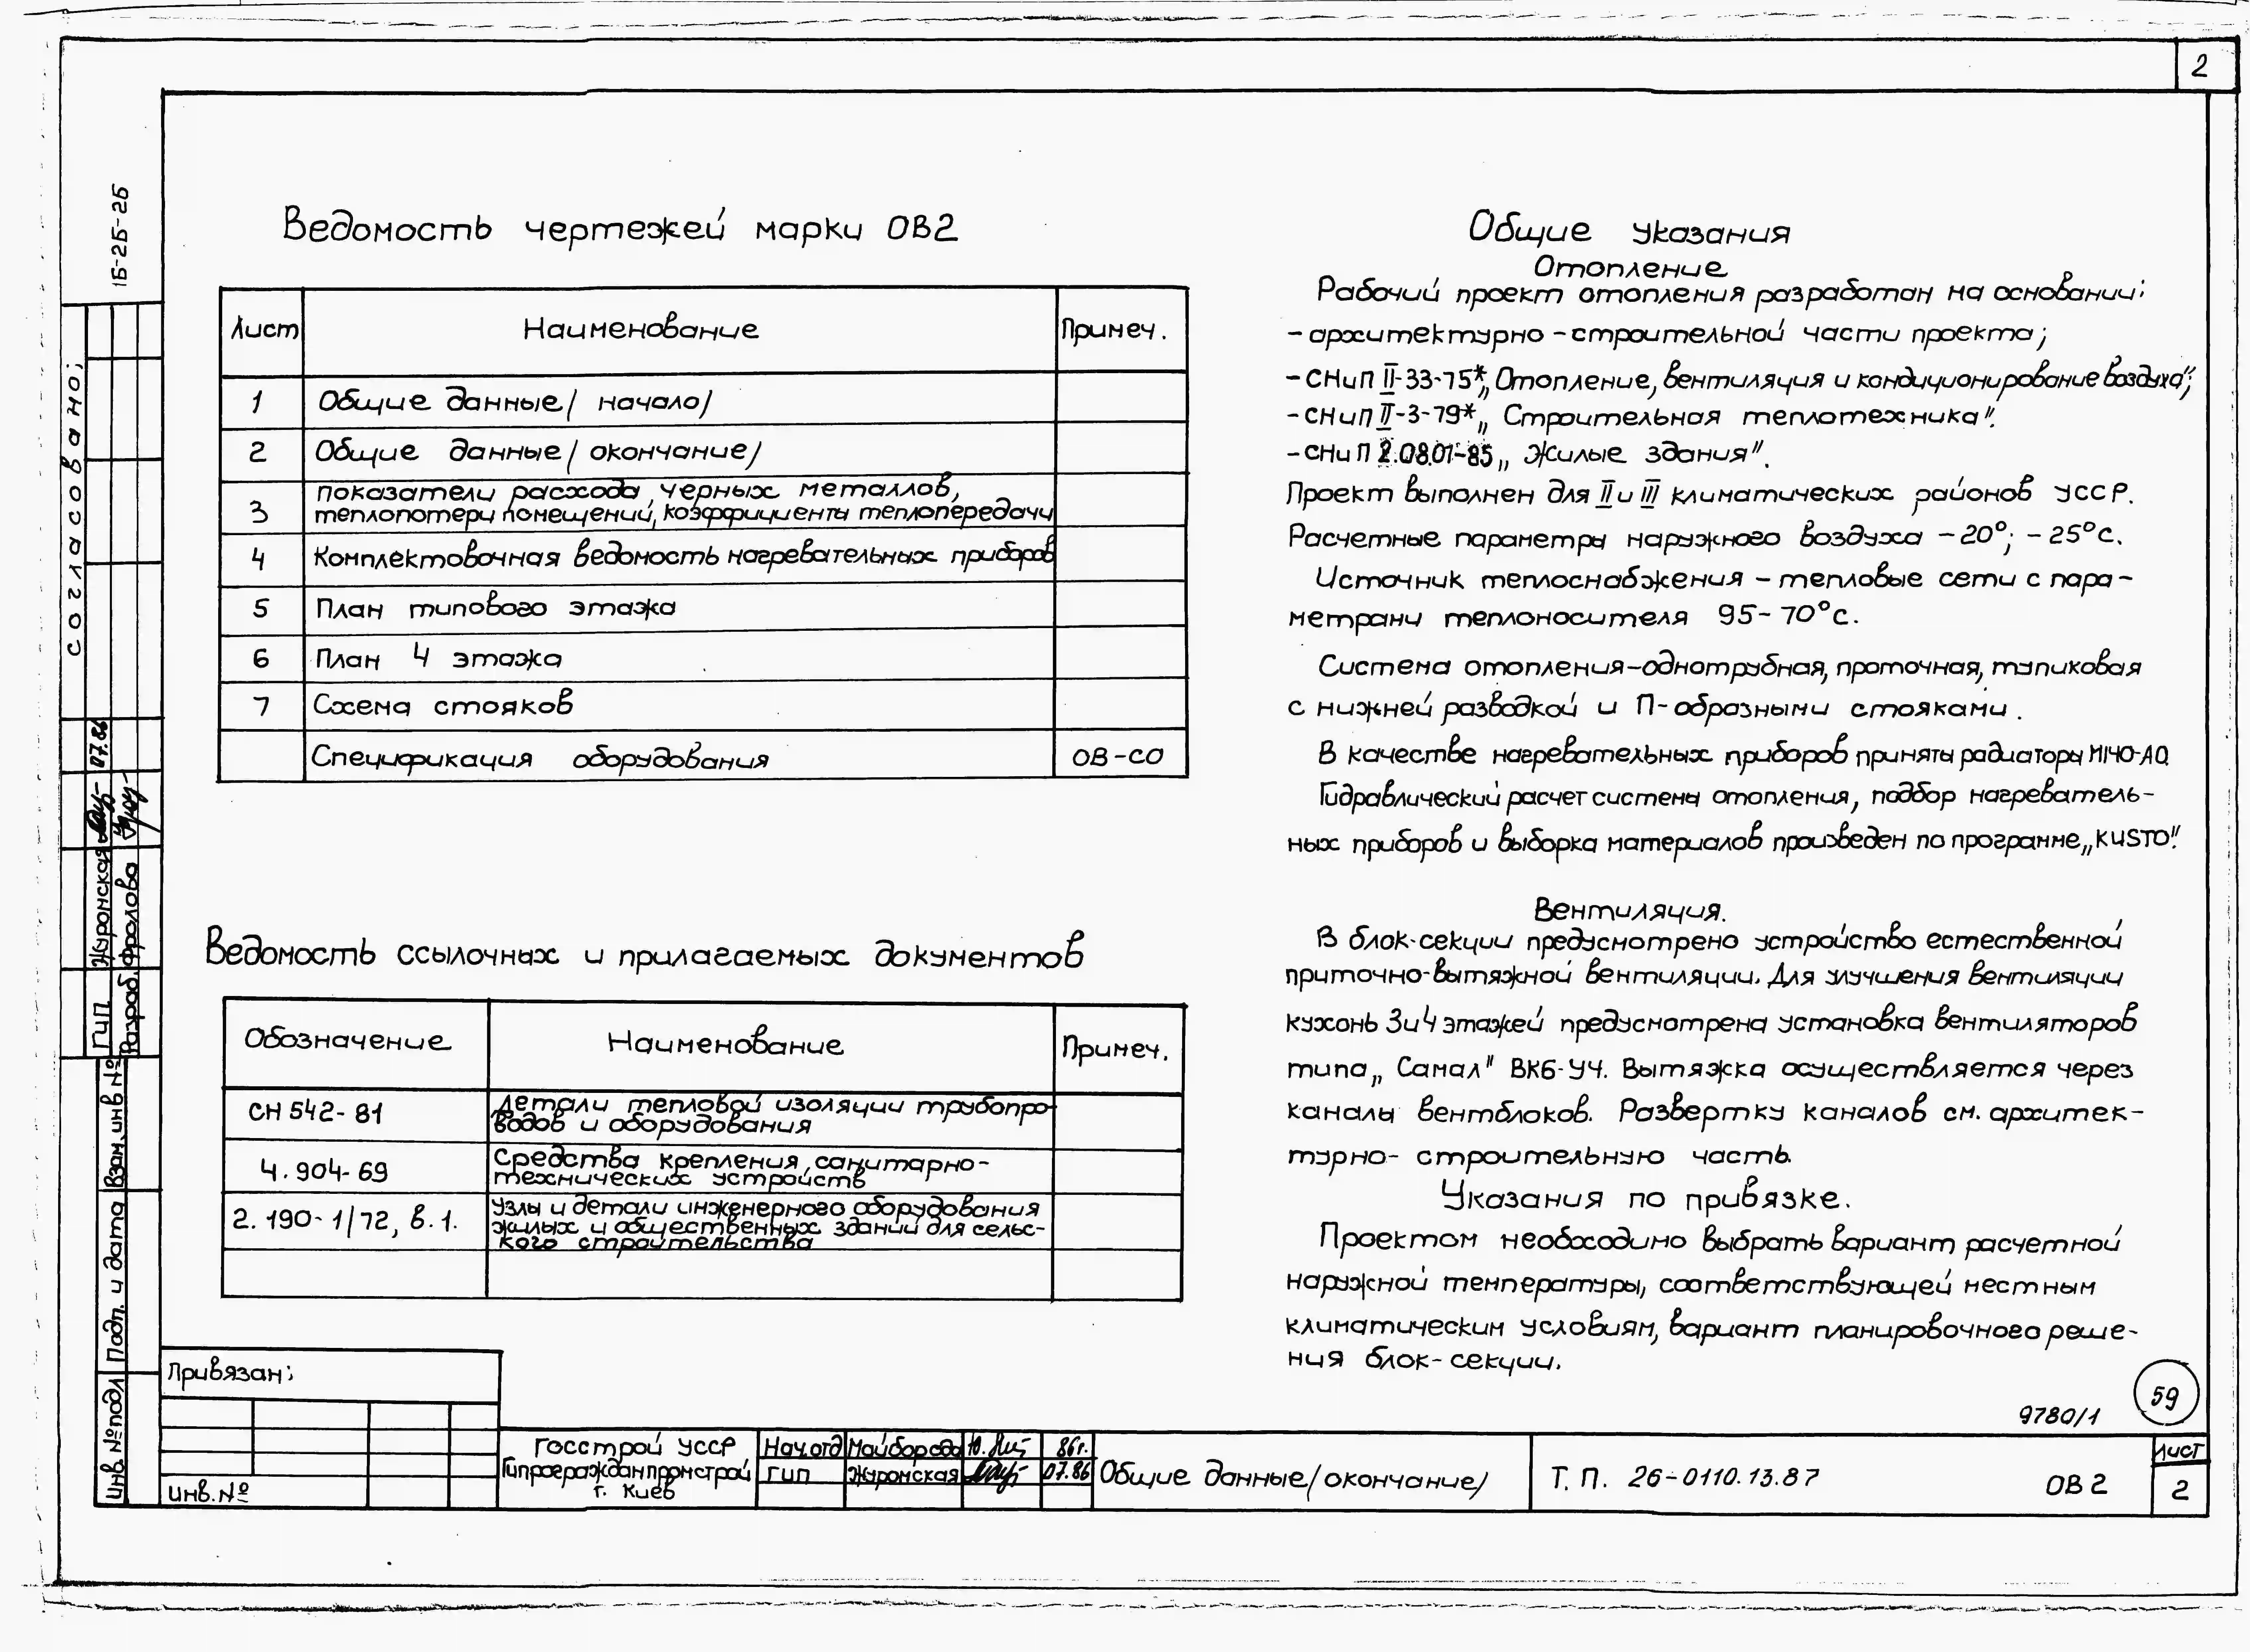 2
1Б-2Б-2Б
Ведомость чертежей марки ОВ2
Лист Наименование Примеч.
1 Общие данные/ начало/
2 Общие данные/ окончание/
3 показатели расхода черных металлов,
теплопотери помещений, коэффициенты теплопередачи
4 Комплектовочная ведомость нагревательных приборов
5 План типового этажа
6 План 4 этажа
7 Схема стояков
Спецификация оборудования ОВ-СО
Ведомость ссылочных и прилагаемых документов
Обозначение Наименование Примеч.
СН 542-81 Детали тепловой изоляции трубопро-
водов и оборудования
4.904-69 Средства крепления санитарно-
технических устройств
2.190-1/72, в.1. Узлы и детали инженерного оборудования
жилых и общественных зданий для сельс-
кого строительства
Общие указания
Отопление
Рабочий проект отопления разработан на основании:
- архитектурно-строительной части проекта;
- СНиП II-33-75* „Отопление, вентиляция и кондиционирование воздуха";
- СНиП II-3-79* „Строительная теплотехника".
- СНиП 2.08.01-85 „Жилые здания".
Проект выполнен для II и III климатических районов УССР.
Расчетные параметры наружного воздуха -20°; -25°с.
Источник теплоснабжения - тепловые сети с пара-
метрами теплоносителя 95-70°с.
Система отопления-однотрубная, проточная, тупиковая
с нижней разводкой и П-образными стояками.
В качестве нагревательных приборов приняты радиаторы М140-АО.
Гидравлический расчет системы отопления, подбор нагреватель-
ных приборов и выборка материалов произведен по программе „KUSTO".
Вентиляция.
В блок-секции предусмотрено устройство естественной
приточно-вытяжной вентиляции. Для улучшения вентиляции
кухонь 3и4 этажей предусмотрена установка вентиляторов
типа „Самал" ВК6-У4. Вытяжка осуществляется через
каналы вентблоков. Развертку каналов см. архитек-
турно-строительную часть.
Указания по привязке.
Проектом необходимо выбрать вариант расчетной
наружной температуры, соответствующей местным
климатическим условиям, вариант планировочного реше-
ния блок-секции.
59
9780/1
согласовано:
ГИП Журомская 07.86
Разраб. Фролова
Взам.инв.№
Подп. и дата
Инв.№подл
Привязан:
Инв.№
Госстрой УССР
Гипрогражданпромстрой
г. Киев
Нач.отд Майборода 86г.
ГИП Журомская 07.86
Общие данные/окончание/
Т.П. 26-0110.13.87 ОВ2
Лист
2